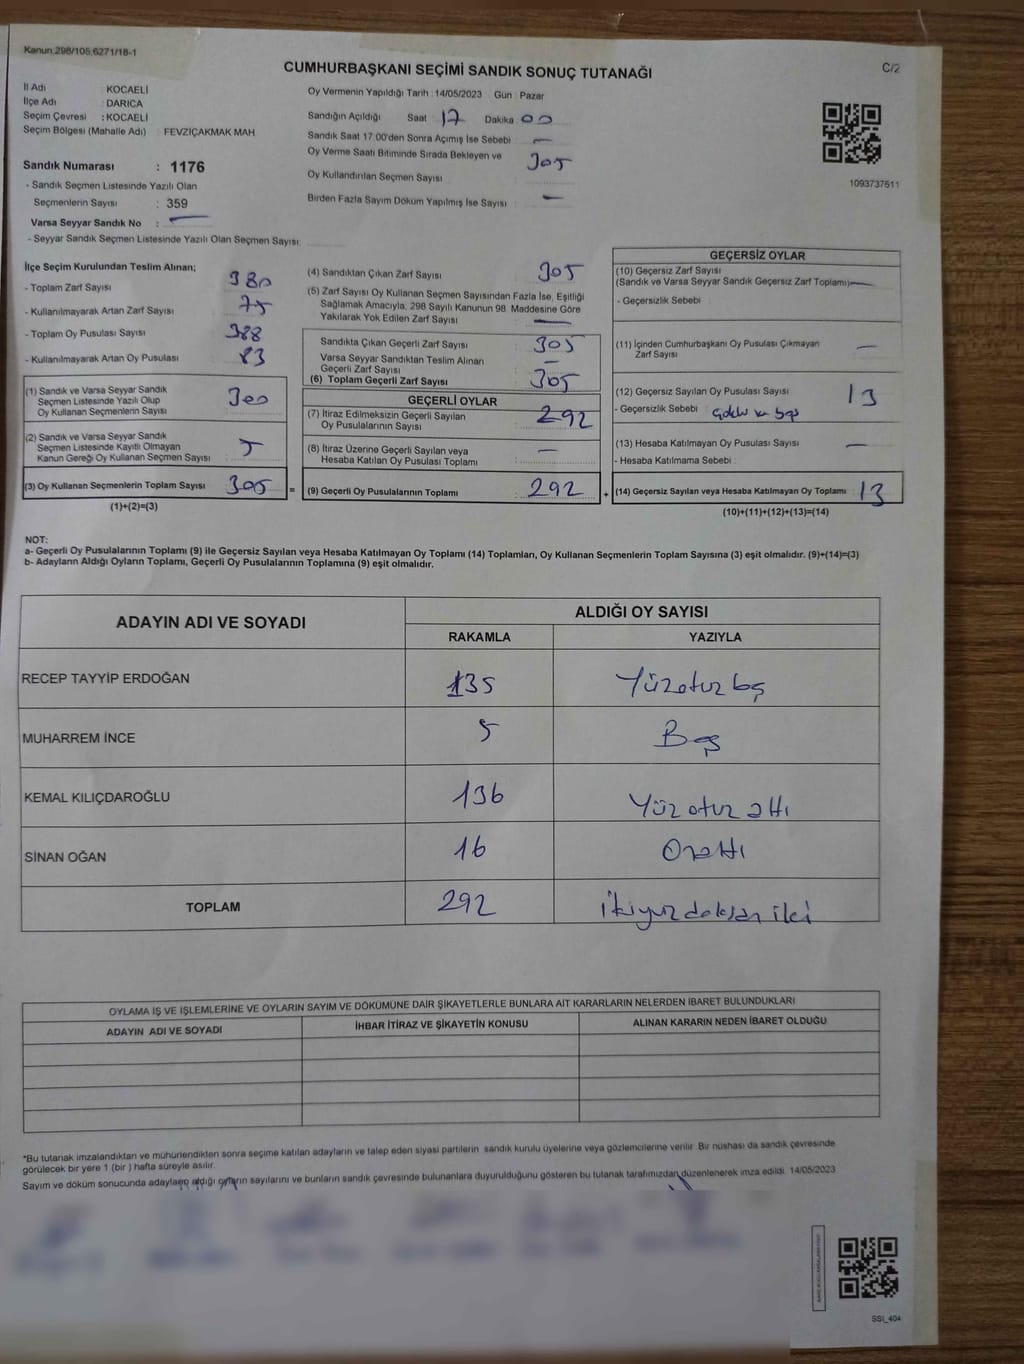 Kanun,298/105,6271/18-1
C/2
CUMHURBAŞKANI SEÇİMİ SANDIK SONUÇ TUTANAĞI
İl Adı : KOCAELİ
İlçe Adı : DARICA
Seçim Çevresi : KOCAELİ
Seçim Bölgesi (Mahalle Adı) : FEVZİÇAKMAK MAH
Sandık Numarası : 1176
- Sandık Seçmen Listesinde Yazılı Olan
Seçmenlerin Sayısı : 359
Varsa Seyyar Sandık No : —
- Seyyar Sandık Seçmen Listesinde Yazılı Olan Seçmen Sayısı:
Oy Vermenin Yapıldığı Tarih : 14/05/2023 Gün : Pazar
Sandığın Açıldığı Saat : 17 Dakika : 00
Sandık Saat 17:00'den Sonra Açımış İse Sebebi : —
Oy Verme Saati Bitiminde Sırada Bekleyen ve
Oy Kullandırılan Seçmen Sayısı : 305
Birden Fazla Sayım Döküm Yapılmış İse Sayısı : —
1093737511
İlçe Seçim Kurulundan Teslim Alınan;
- Toplam Zarf Sayısı : 380
- Kullanılmayarak Artan Zarf Sayısı : 75
- Toplam Oy Pusulası Sayısı : 388
- Kullanılmayarak Artan Oy Pusulası : 83
(1) Sandık ve Varsa Seyyar Sandık
Seçmen Listesinde Yazılı Olup
Oy Kullanan Seçmenlerin Sayısı : 300
(2) Sandık ve Varsa Seyyar Sandık
Seçmen Listesinde Kayıtlı Olmayan
Kanun Gereği Oy Kullanan Seçmen Sayısı : 5
(3) Oy Kullanan Seçmenlerin Toplam Sayısı : 305 =
(1)+(2)=(3)
(4) Sandıktan Çıkan Zarf Sayısı : 305
(5) Zarf Sayısı Oy Kullanan Seçmen Sayısından Fazla İse, Eşitliği
Sağlamak Amacıyla, 298 Sayılı Kanunun 98. Maddesine Göre
Yakılarak Yok Edilen Zarf Sayısı : —
Sandıkta Çıkan Geçerli Zarf Sayısı : 305
Varsa Seyyar Sandıktan Teslim Alınan
Geçerli Zarf Sayısı : —
(6) Toplam Geçerli Zarf Sayısı : 305
GEÇERLİ OYLAR
(7) İtiraz Edilmeksizin Geçerli Sayılan
Oy Pusulalarının Sayısı : 292
(8) İtiraz Üzerine Geçerli Sayılan veya
Hesaba Katılan Oy Pusulası Toplamı : —
(9) Geçerli Oy Pusulalarının Toplamı : 292 +
GEÇERSİZ OYLAR
(10) Geçersiz Zarf Sayısı
(Sandık ve Varsa Seyyar Sandık Geçersiz Zarf Toplamı): —
- Geçersizlik Sebebi :
(11) İçinden Cumhurbaşkanı Oy Pusulası Çıkmayan
Zarf Sayısı : —
(12) Geçersiz Sayılan Oy Pusulası Sayısı : 13
- Geçersizlik Sebebi :
(13) Hesaba Katılmayan Oy Pusulası Sayısı : —
- Hesaba Katılmama Sebebi :
(14) Geçersiz Sayılan veya Hesaba Katılmayan Oy Toplamı : 13
(10)+(11)+(12)+(13)=(14)
NOT:
a- Geçerli Oy Pusulalarının Toplamı (9) ile Geçersiz Sayılan veya Hesaba Katılmayan Oy Toplamı (14) Toplamları, Oy Kullanan Seçmenlerin Toplam Sayısına (3) eşit olmalıdır. (9)+(14)=(3)
b- Adayların Aldığı Oyların Toplamı, Geçerli Oy Pusulalarının Toplamına (9) eşit olmalıdır.
ADAYIN ADI VE SOYADI ALDIĞI OY SAYISI
RAKAMLA YAZIYLA
RECEP TAYYİP ERDOĞAN 135 Yüzotuz beş
MUHARREM İNCE 5 Beş
KEMAL KILIÇDAROĞLU 136 Yüz otuz altı
SİNAN OĞAN 16 Onaltı
TOPLAM 292 ikiyüz doksan iki
OYLAMA İŞ VE İŞLEMLERİNE VE OYLARIN SAYIM VE DÖKÜMÜNE DAİR ŞİKAYETLERLE BUNLARA AİT KARARLARIN NELERDEN İBARET BULUNDUKLARI
ADAYIN ADI VE SOYADI İHBAR İTİRAZ VE ŞİKAYETİN KONUSU ALINAN KARARIN NEDEN İBARET OLDUĞU
*Bu tutanak imzalandıktan ve mühürlendikten sonra seçime katılan adayların ve talep eden siyasi partilerin sandık kurulu üyelerine veya gözlemcilerine verilir. Bir nüshası da sandık çevresinde
görülecek bir yere 1 (bir ) hafta süreyle asılır.
Sayım ve döküm sonucunda adayların aldığı oyların sayılarını ve bunların sandık çevresinde bulunanlara duyurulduğunu gösteren bu tutanak tarafımızdan düzenlenerek imza edildi. 14/05/2023
SSI_404